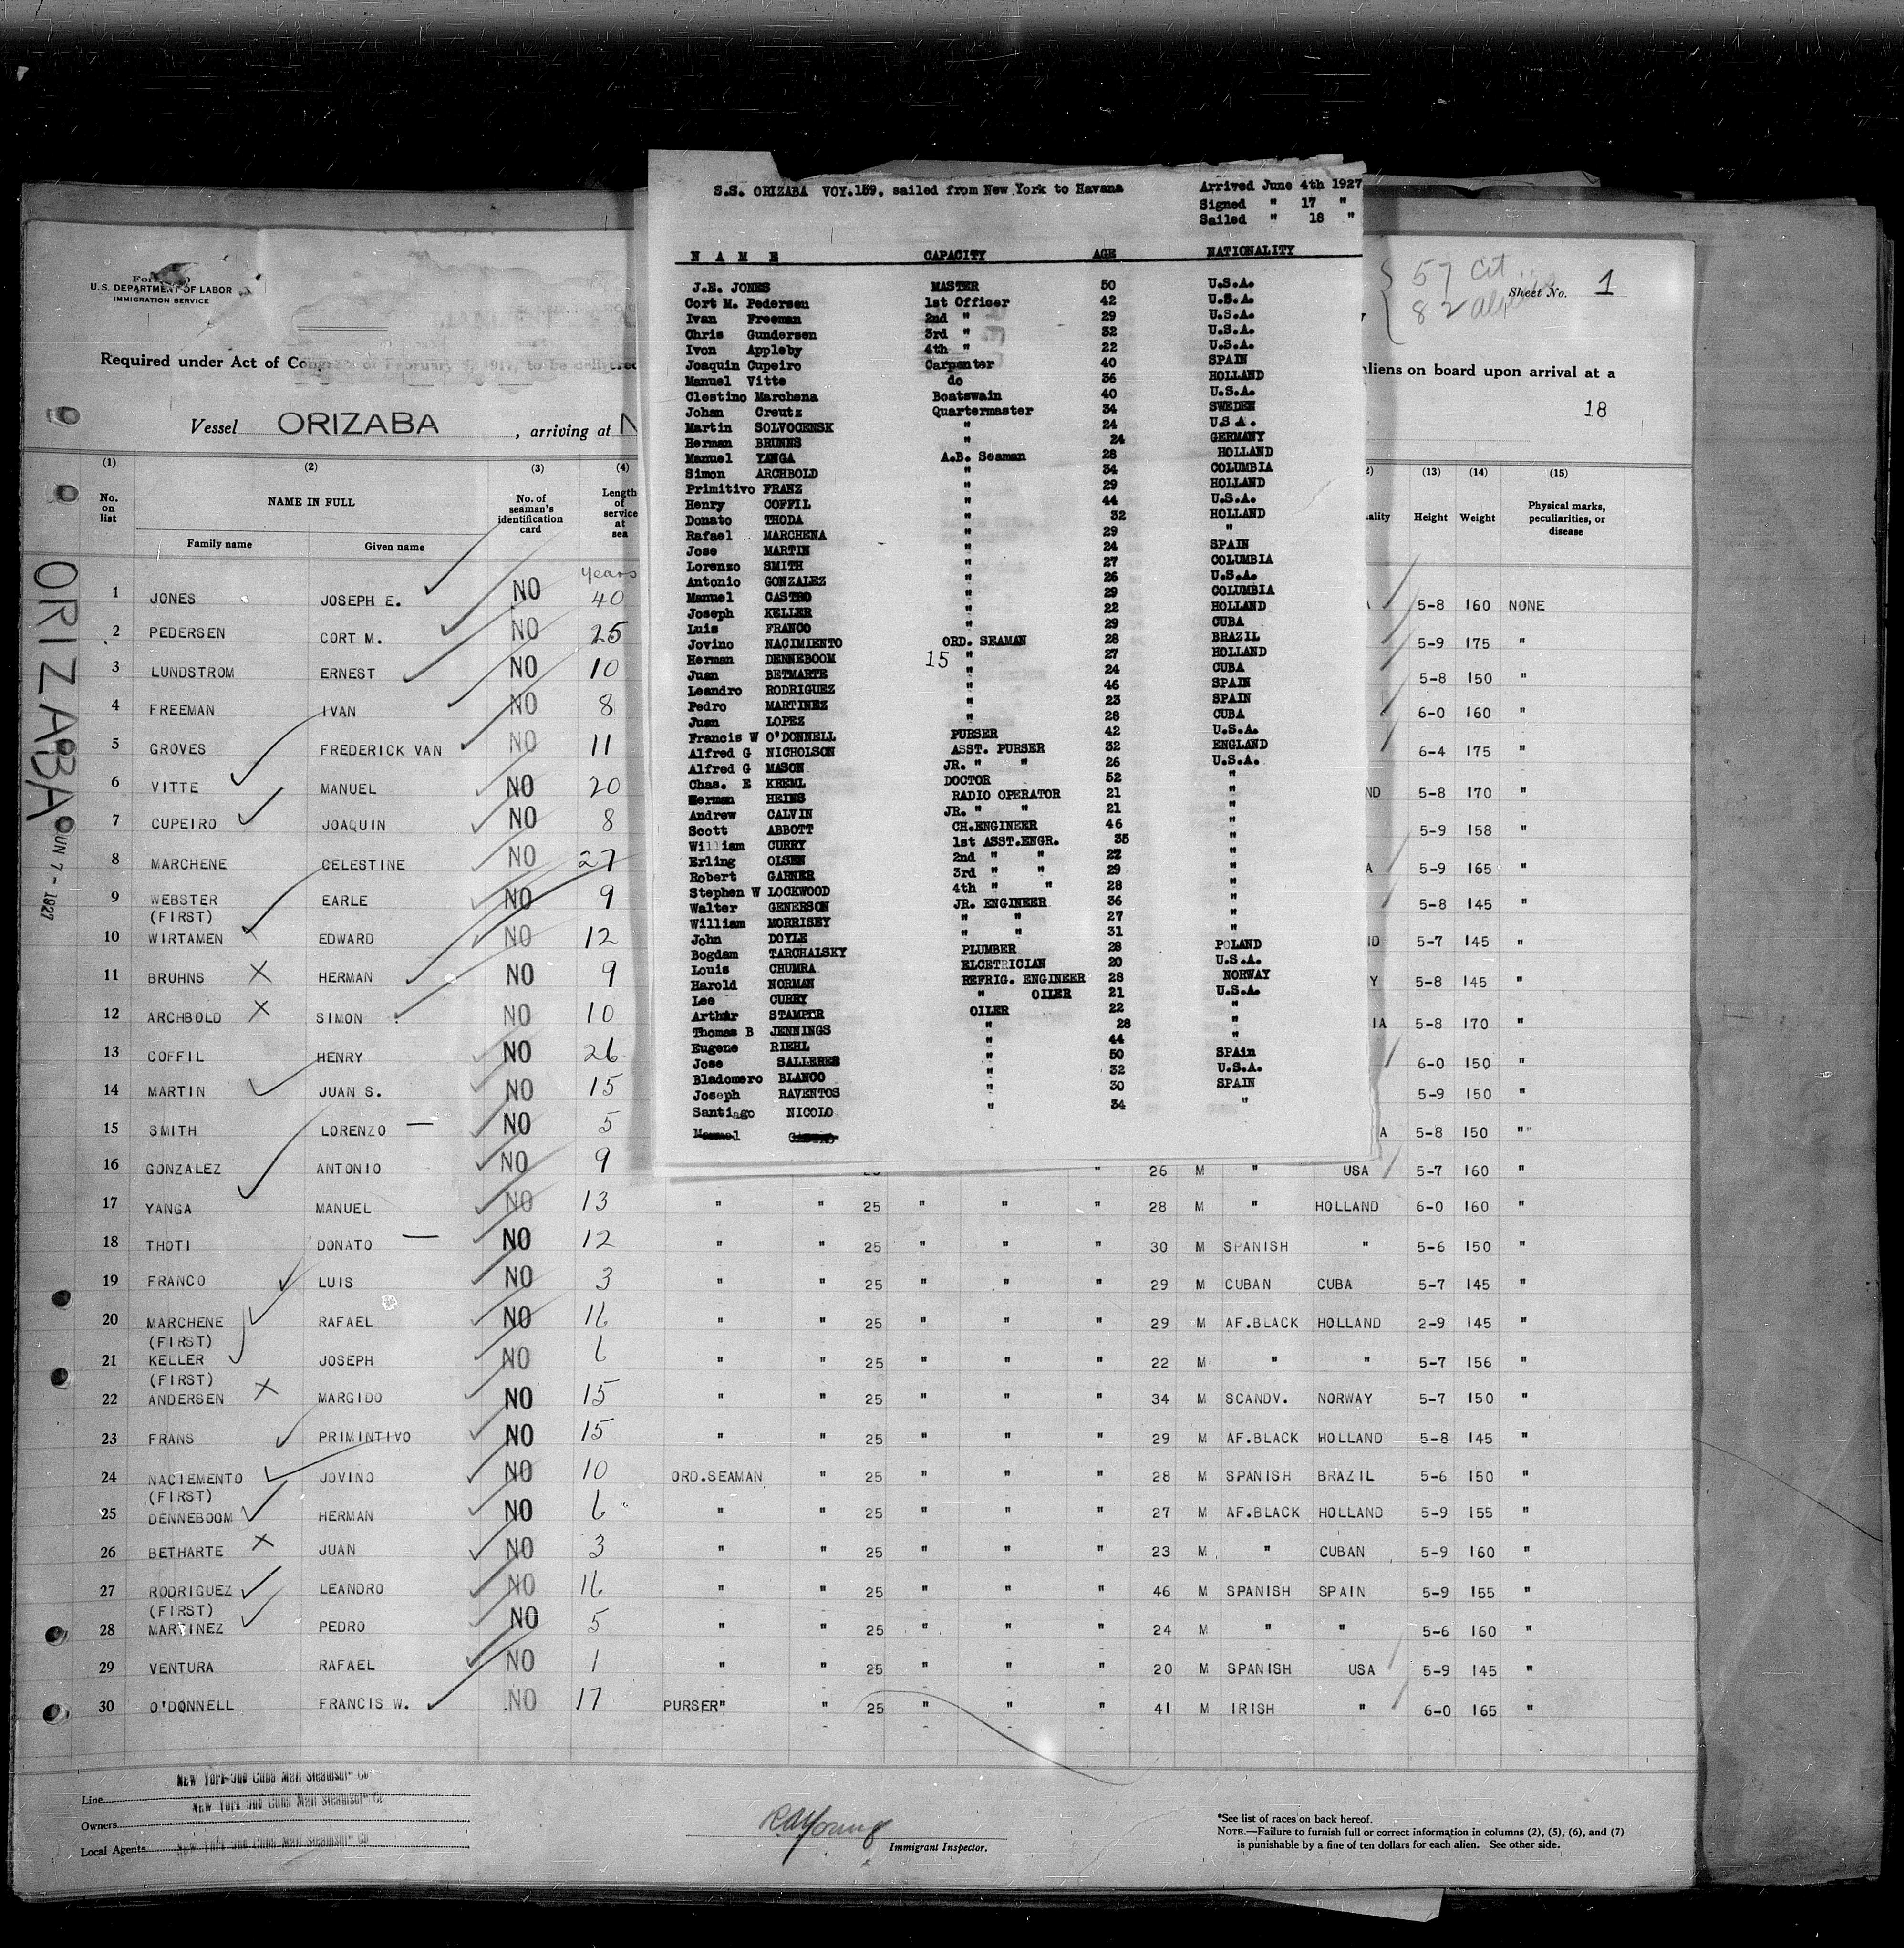 S.S. ORIZABA VOY.159, sailed from New York to Havana
Arrived June 4th 1927
Signed " 17 "
Sailed " 18 "
N A M E CAPACITY AGE NATIONALITY
J.E. JONES MASTER 50 U.S.A.
Cort M. Pedersen 1st Officer 42 U.S.A.
Ivan Freeman 2nd " 29 U.S.A.
Chris Gundersen 3rd " 32 U.S.A.
Ivon Appleby 4th " 22 U.S.A.
Joaquin Cupeiro Carpenter 40 SPAIN
Manuel Vitte do 36 HOLLAND
Clestino Marchena Boatswain 40 U.S.A.
Johan Creutz Quartermaster 34 SWEDEN
Martin SOLVOGENSK " 24 U.S.A.
Herman BRUNNS " 24 GERMANY
Manuel YANGA A.B. Seaman 28 HOLLAND
Simon ARCHBOLD " 34 COLUMBIA
Primitivo FRANZ " 29 HOLLAND
Henry COFFIL " 44 U.S.A.
Donato THODA " 32 HOLLAND
Rafael MARCHENA " 29 "
Jose MARTIN " 24 SPAIN
Lorenzo SMITH " 27 COLUMBIA
Antonio GONZALEZ " 26 U.S.A.
Manuel CASTRO " 29 COLUMBIA
Joseph KELLER " 22 HOLLAND
Luis FRANCO " 29 CUBA
Jovino NACIMIENTO ORD. SEAMAN 28 BRAZIL
Herman DENNEBOOM 15 " 27 HOLLAND
Juan BETMARTE " 24 CUBA
Leandro RODRIGUEZ " 46 SPAIN
Pedro MARTINEZ " 23 SPAIN
Juan LOPEZ " 28 CUBA
Francis W O'DONNELL PURSER 42 U.S.A.
Alfred G NICHOLSON ASST. PURSER 32 ENGLAND
Alfred G MASON JR. " " 26 U.S.A.
Chas. E KREML DOCTOR 52 "
Herman HEINS RADIO OPERATOR 21 "
Andrew CALVIN JR. " " 21 "
Scott ABBOTT CH.ENGINEER 46 "
William CURRY 1st ASST.ENGR. 35 "
Erling OLSEN 2nd " " 27 "
Robert GARNER 3rd " " 29 "
Stephen W LOCKWOOD 4th " " 28 "
Walter GENERSON JR. ENGINEER 36 "
William MORRISEY " " 27 "
John DOYLE " " 31 "
Bogdam TARCHALSKY PLUMBER 28 POLAND
Louis CHUMRA ELCETRICIAN 20 U.S.A.
Harold NORMAN REFRIG. ENGINEER 28 NORWAY
Lee CURRY " OILER 21 U.S.A.
Arthur STAMPTR OILER 22 "
Thomas B JENNINGS " 28 "
Eugene RIEHL " 44 "
Jose SALLERES " 50 SPAin
Bladomero BLANCO " 32 U.S.A.
Joseph RAVENTOS " 30 SPAIN
Santiago NICOLO " 34 "
U.S. DEPARTMENT OF LABOR
IMMIGRATION SERVICE
57 Cit
82 aliens
Sheet No. 1
Required under Act of Congress of February 5, 1917, to be delivered
aliens on board upon arrival at a
18
Vessel ORIZABA, arriving at N
ORIZABA
JUN 7 - 1927
(1) (2) (3) (4) (13) (14) (15)
No. on list
NAME IN FULL
Family name Given name
No. of seaman's identification card
Length of service at sea
ality
Height Weight
Physical marks, peculiarities, or disease
years
1 JONES JOSEPH E. NO 40 5-8 160 NONE
2 PEDERSEN CORT M. NO 25 5-9 175 "
3 LUNDSTROM ERNEST NO 10 5-8 150 "
4 FREEMAN IVAN NO 8 6-0 160 "
5 GROVES FREDERICK VAN NO 11 6-4 175 "
6 VITTE MANUEL NO 20 ND 5-8 170 "
7 CUPEIRO JOAQUIN NO 8 5-9 158 "
8 MARCHENE CELESTINE NO 27 A 5-9 165 "
9 WEBSTER EARLE NO 9 5-8 145 "
(FIRST)
10 WIRTAMEN EDWARD NO 12 ND 5-7 145 "
11 BRUHNS X HERMAN NO 9 Y 5-8 145 "
12 ARCHBOLD X SIMON NO 10 IA 5-8 170 "
13 COFFIL HENRY NO 26 6-0 150 "
14 MARTIN JUAN S. NO 15 5-9 150 "
15 SMITH LORENZO NO 5 A 5-8 150 "
16 GONZALEZ ANTONIO NO 9 " 26 M " USA 5-7 160 "
17 YANGA MANUEL NO 13 " " 25 " " " 28 M " HOLLAND 6-0 160 "
18 THOTI DONATO NO 12 " " 25 " " " 30 M SPANISH " 5-6 150 "
19 FRANCO LUIS NO 3 " " 25 " " " 29 M CUBAN CUBA 5-7 145 "
20 MARCHENE RAFAEL NO 16 " " 25 " " " 29 M AF.BLACK HOLLAND 2-9 145 "
(FIRST)
21 KELLER JOSEPH NO 6 " " 25 " " " 22 M " " 5-7 156 "
(FIRST)
22 ANDERSEN X MARGIDO NO 15 " " 25 " " " 34 M SCANDV. NORWAY 5-7 150 "
23 FRANS PRIMINTIVO NO 15 " " 25 " " " 29 M AF.BLACK HOLLAND 5-8 145 "
24 NACIEMENTO JOVINO NO 10 ORD.SEAMAN " 25 " " " 28 M SPANISH BRAZIL 5-6 150 "
(FIRST)
25 DENNEBOOM HERMAN NO 6 " " 25 " " " 27 M AF.BLACK HOLLAND 5-9 155 "
26 BETHARTE X JUAN NO 3 " " 25 " " " 23 M " CUBAN 5-9 160 "
27 RODRIGUEZ LEANDRO NO 16 " " 25 " " " 46 M SPANISH SPAIN 5-9 155 "
(FIRST)
28 MARTINEZ PEDRO NO 5 " " 25 " " " 24 M " " 5-6 160 "
29 VENTURA RAFAEL NO 1 " " 25 " " " 20 M SPANISH USA 5-9 145 "
30 O'DONNELL FRANCIS W. NO 17 PURSER" " 25 " " " 41 M IRISH " 6-0 165 "
Line New York and Cuba Mail Steamship Co
Owners New York and Cuba Mail Steamship Co
Local Agents New York and Cuba Mail Steamship Co
RAYoung
Immigrant Inspector.
*See list of races on back hereof.
NOTE.—Failure to furnish full or correct information in columns (2), (5), (6), and (7)
is punishable by a fine of ten dollars for each alien. See other side.